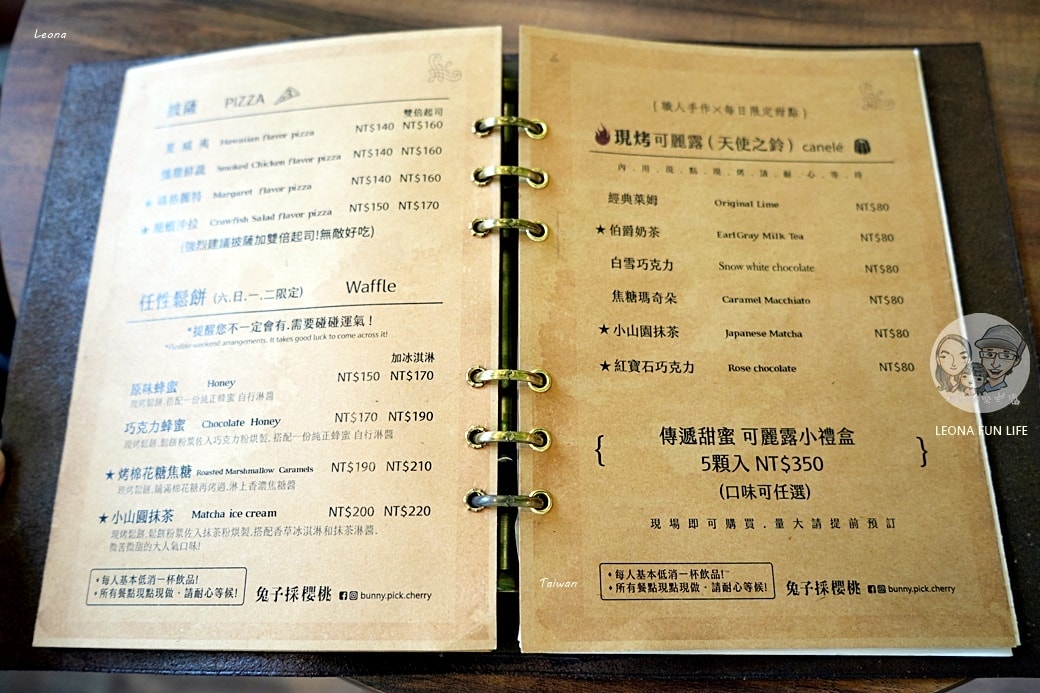 Leona
披薩 PIZZA
雙倍起司
夏威夷 Hawaiian flavor pizza NT$140 NT$160
燻雞鮮蔬 Smoked Chicken flavor pizza NT$140 NT$160
★ 瑪格麗特 Margaret flavor pizza NT$140 NT$160
★ 龍蝦沙拉 Crowfish Salad flavor pizza NT$150 NT$170
(強烈建議披薩加雙倍起司!無敵好吃)
任性鬆餅 (六.日.一.二限定) Waffle
*提醒您不一定會有.需要碰碰運氣!
weekend arrangements. It takes good luck to come across it!
加冰淇淋
原味蜂蜜 Honey NT$150 NT$170
現烤鬆餅.搭配一份純正蜂蜜 自行淋醬
巧克力蜂蜜 Chocolate Honey NT$170 NT$190
現烤鬆餅.鬆餅粉漿佐入巧克力粉烘製.搭配一份純正蜂蜜 自行淋醬
★ 烤棉花糖焦糖 Roasted Marshmallow Caramels NT$190 NT$210
現烤鬆餅.鋪滿棉花糖再烤過.淋上香濃焦糖醬
★ 小山園抹茶 Matcha ice cream NT$200 NT$220
現烤鬆餅.鬆餅粉漿佐入抹茶粉烘製.搭配香草冰淇淋和抹茶淋醬.
微苦微甜的大人氣口味!
*每人基本低消一杯飲品!
*所有餐點現點現做、請耐心等候!
兔子採櫻桃 bunny.pick.cherry
( 職人手作×每日限定甜點 )
現烤可麗露(天使之鈴) canelé
內.用.現.點.現.烤.請.耐.心.等.待
經典萊姆 Original Lime NT$80
★ 伯爵奶茶 EarlGray Milk Tea NT$80
白雪巧克力 Snow white chocolate NT$80
焦糖瑪奇朵 Caramel Macchiato NT$80
★ 小山園抹茶 Japanese Matcha NT$80
★ 紅寶石巧克力 Rose chocolate NT$80
{ 傳遞甜蜜 可麗露小禮盒 }
5顆入 NT$350
(口味可任選)
現場即可購買.量大請提前預訂
*每人基本低消一杯飲品!
*所有餐點現點現做、請耐心等候!
兔子採櫻桃 bunny.pick.cherry
Taiwan
LEONA FUN LIFE